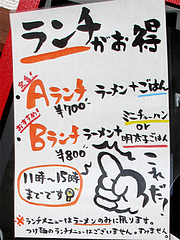 ランチがお得
定番!
Aランチ ラーメン+ごはん
¥700
おすすめ!
Bランチ ラーメン+ミニチャーハン
or
明太子ごはん
¥800
11時〜15時
までです
これだ!
※ランチメニューはラーメンのみに限ります。
つけ麺のランチメニューはございません。すみません